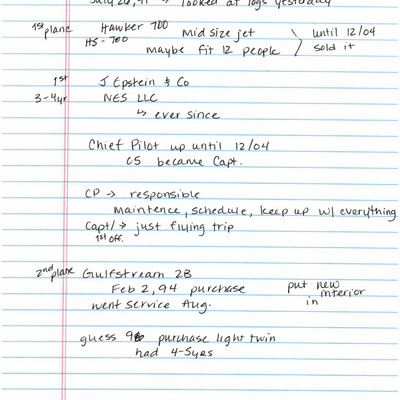 July 26, 91 → looked at logs yesterday
1st plane Hawker 700 Mid size jet \ until 12/04
HS-700 maybe fit 12 people / sold it
1st J Epstein & Co
3-4yr NES LLC
↳ ever since
Chief Pilot up until 12/04
05 became Capt.
CP → responsible
Maintence, schedule, keep up w/ everything
Capt/ → just flying trip
1st off.
2nd plane Gulfstream 2B
Feb 2, 94 purchase put new interior
went service Aug. in
guess 96 purchase light twin
had 4-5yes